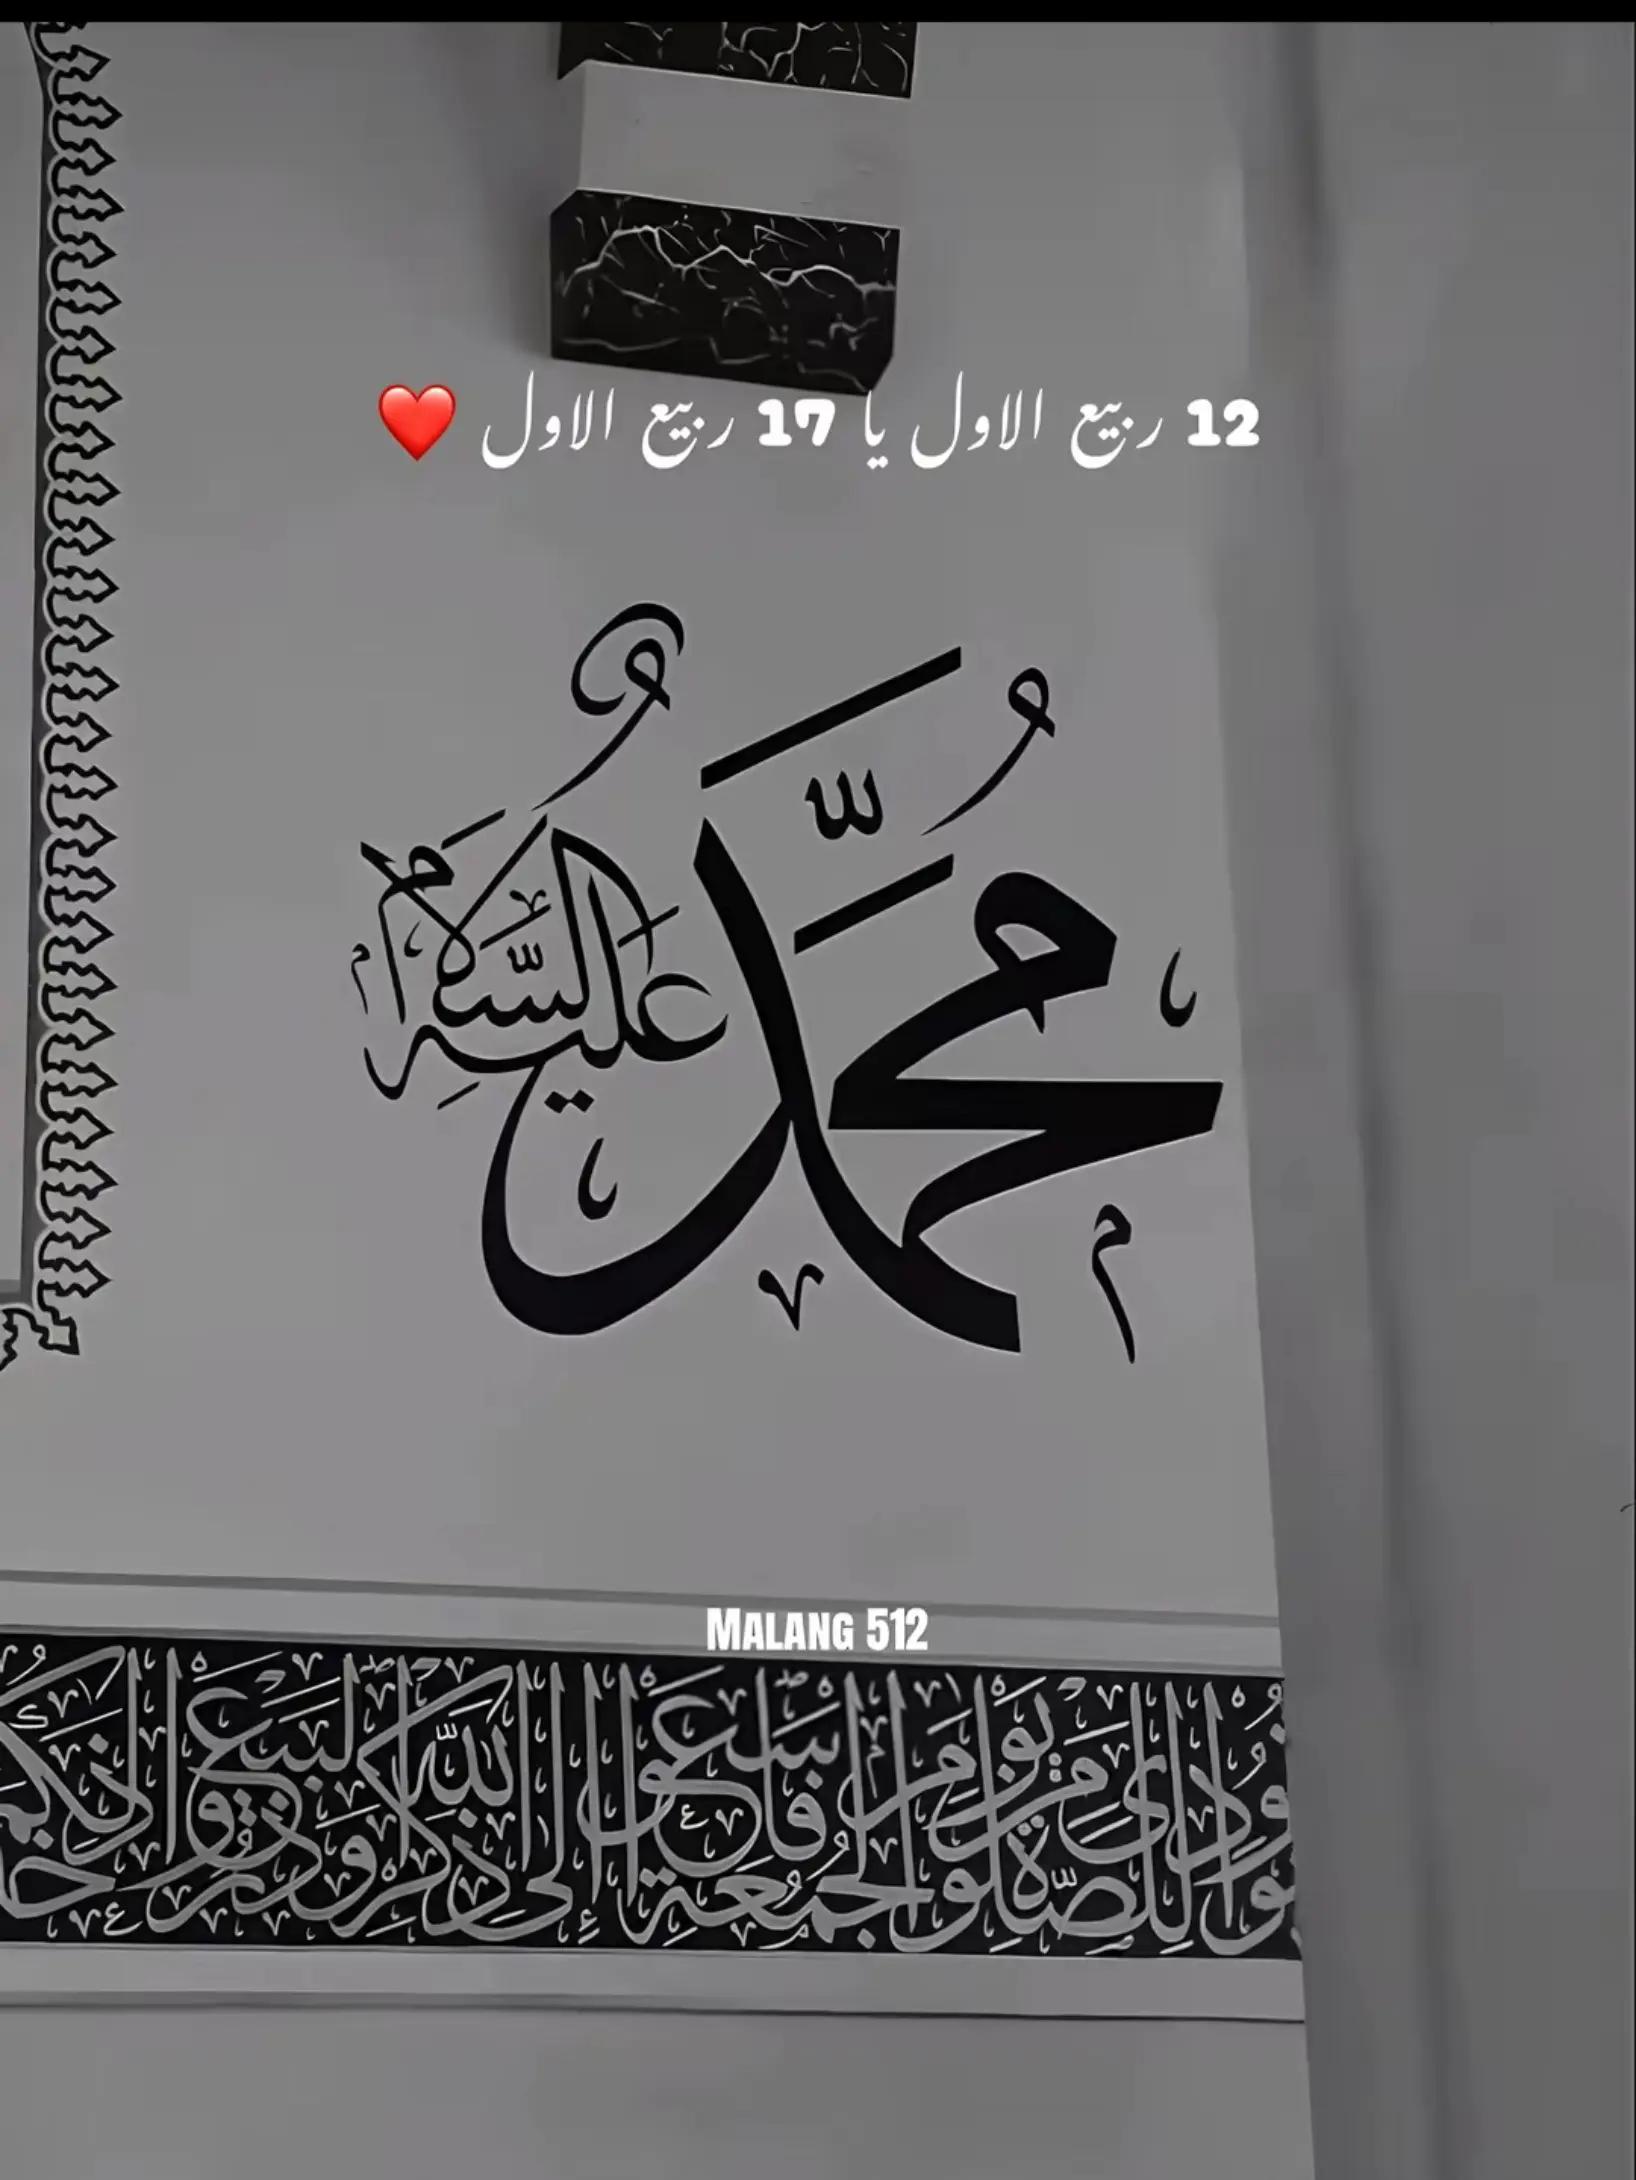 12 ربیع الاول یا 17 ربیع الاول ❤️
محمّد عليه السّلام
MALANG 512
نُودِىَ لِلصَّلَوٰةِ مِنْ يَوْمِ الْجُمُعَةِ فَاسْعَوْا إِلَىٰ ذِكْرِ اللَّهِ وَذَرُوا الْبَيْعَ